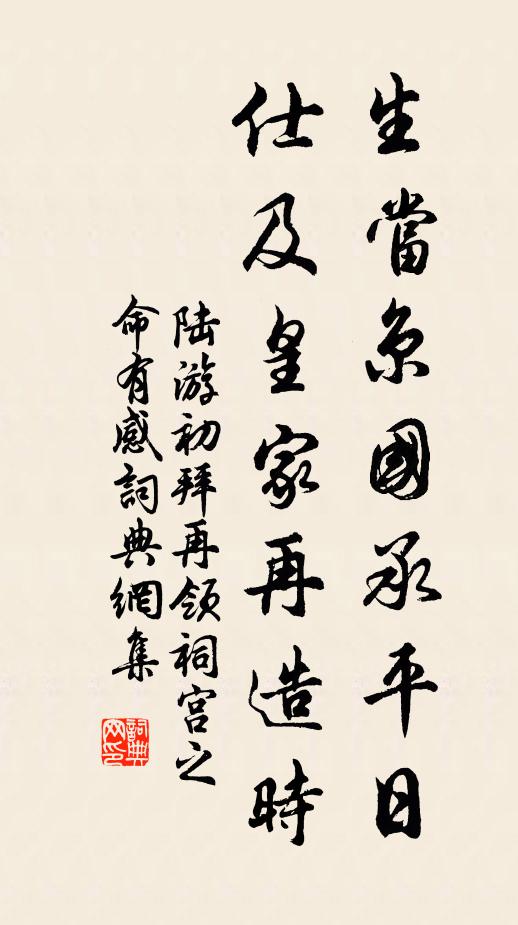 生當京國承平日
仕及皇家再造時
陆游初拜再领祠宫之
命有感詞典網集
詞典網印